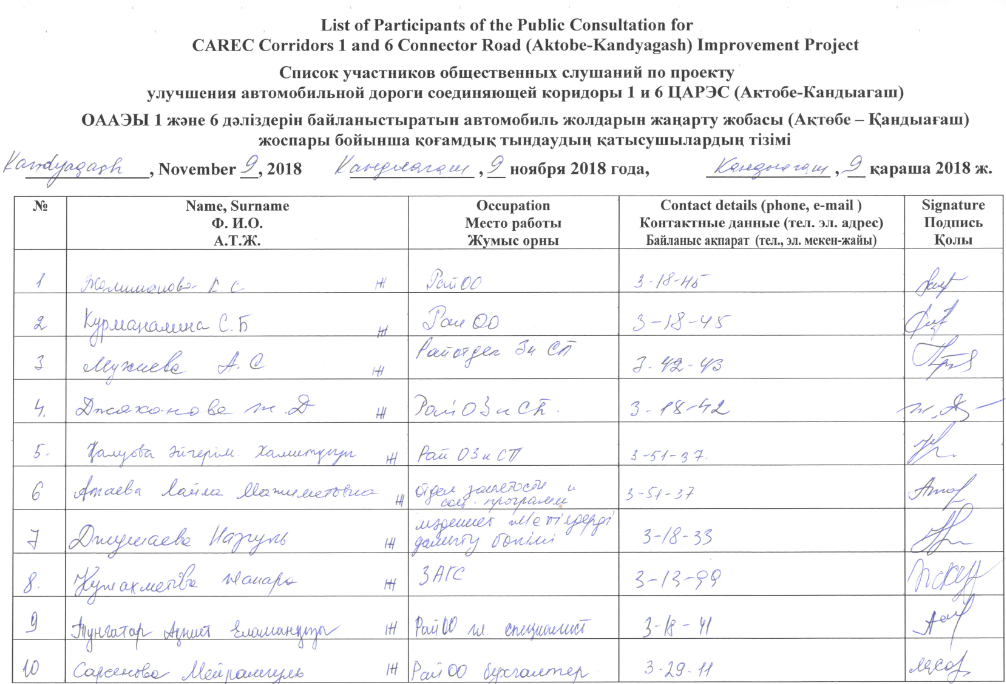 List of Participants of the Public Consultation for
CAREC Corridors 1 and 6 Connector Road (Aktobe-Kandyagash) Improvement Project
Список участников общественных слушаний по проекту
улучшения автомобильной дороги соединяющей коридоры 1 и 6 ЦАРЭС (Актобе-Кандыагаш)
ОААЭЫ 1 және 6 дәліздерін байланыстыратын автомобиль жолдарын жаңарту жобасы (Ақтөбе – Қандыағаш)
жоспары бойынша қоғамдық тындаудың қатысушылардың тізімі
Kandyagash, November 9, 2018 Кандыагаш, 9 ноября 2018 года, Кандыагаш, 9 қараша 2018 ж.
№ Name, Surname Occupation Contact details (phone, e-mail ) Signature
Ф. И.О. Место работы Контактные данные (тел. эл. адрес) Подпись
А.Т.Ж. Жумыс орны Байланыс ақпарат (тел., эл. мекен-жайы) Қолы
1 К С Ж РайОО 3-18-45
2 Курманалина С.Б Ж РайОО 3-18-45
3 А.С Ж Райотдел ЗиСП 3-42-43
4. Джаханова Ж.Д Ж РайОЗиСП. 3-18-42
5. Әйгерім Ж РайОЗиСП 3-51-37.
6 Атаева Лайла Ж отдел занятости и соц. программ 3-51-37
7 Джумаева Наргуль Ж мәдениет және тілдерді дамыту бөлімі 3-18-33
8. Ж ЗАГС 3-13-99
9 Тунгатар Еламанқызы Ж РайОО гл. специалист 3-18-41
10 Сарсенова Мейрамгуль Ж РайОО бухгалтер 3-29-11